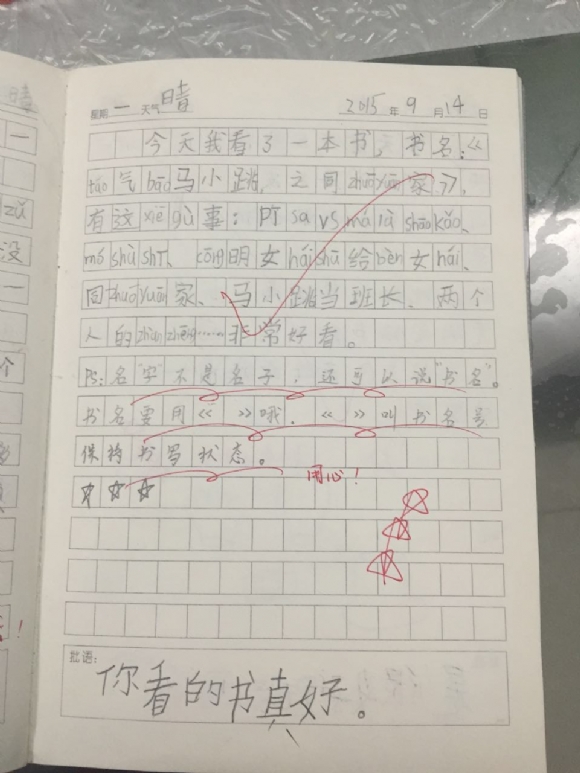 星期 一 天气 晴 2015 年 9 月 14 日
今天我看了一本书，书名：《
táo气bāo马小跳，之同zhuōyuō家》，
有这xiē gù事：Pī sà VS má là shāo kǎo、
mó shù shī、cōng明女hái shū给bèn女hái、
同zhuōyuān家、马小跳当班长、两个
人的zhàn zhēng……非常好看。
PS：名字不是名子，还可以说“书名”。
书名要用《》哦，《》叫书名号
保持书写状态。
用心！
批语：
你看的书真好。